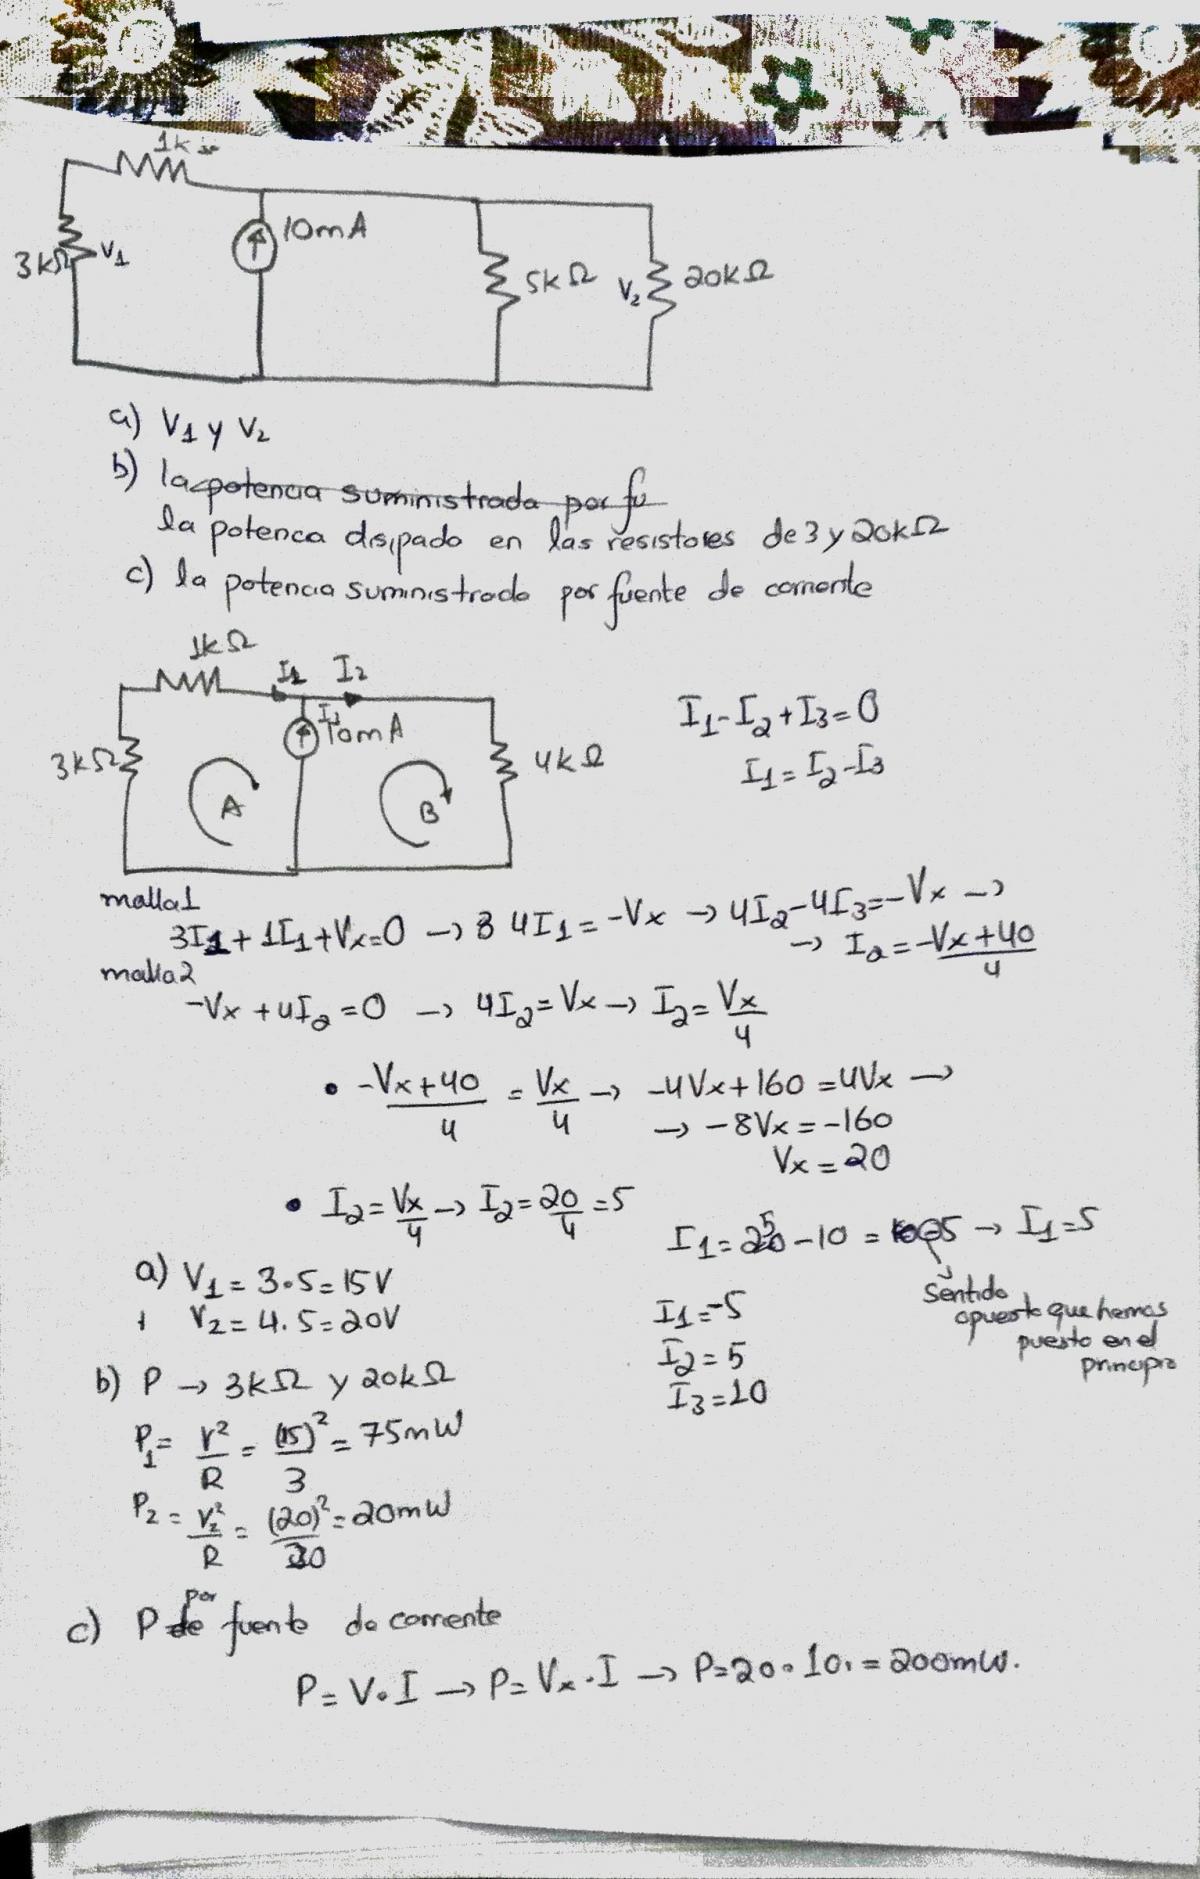 1k
3kΩ
V1
10mA
5kΩ
V2
20kΩ
a) V1 y V2
b) la potencia suministrada por fu
la potenca disipado en las resistores de 3 y 20kΩ
c) la potencia suministrado por fuente de corriente
1kΩ
I1 I2
I3
10mA
3kΩ
4kΩ
A
B
I1-I2+I3=0
I1=I2-I3
malla1
3I1+1I1+Vx=0 → 4I1=-Vx → 4I2-4I3=-Vx →
→ I2=-Vx+40/4
malla2
-Vx+4I2=0 → 4I2=Vx → I2=Vx/4
• -Vx+40/4 = Vx/4 → -4Vx+160=4Vx →
→ -8Vx=-160
Vx=20
• I2=Vx/4 → I2=20/4=5
I1=5-10=-5 → I1=5
sentido
opuesto que hemos
puesto en el
principio
a) V1=3·5=15V
V2=4.5=20V
I1=-5
I2=5
I3=10
b) P → 3kΩ y 20kΩ
P1=V²/R=(15)²/3=75mW
P2=V2²/R=(20)²/20=20mW
c) P por fuente de corriente
P=V·I → P=Vx·I → P=20·10.=200mW.